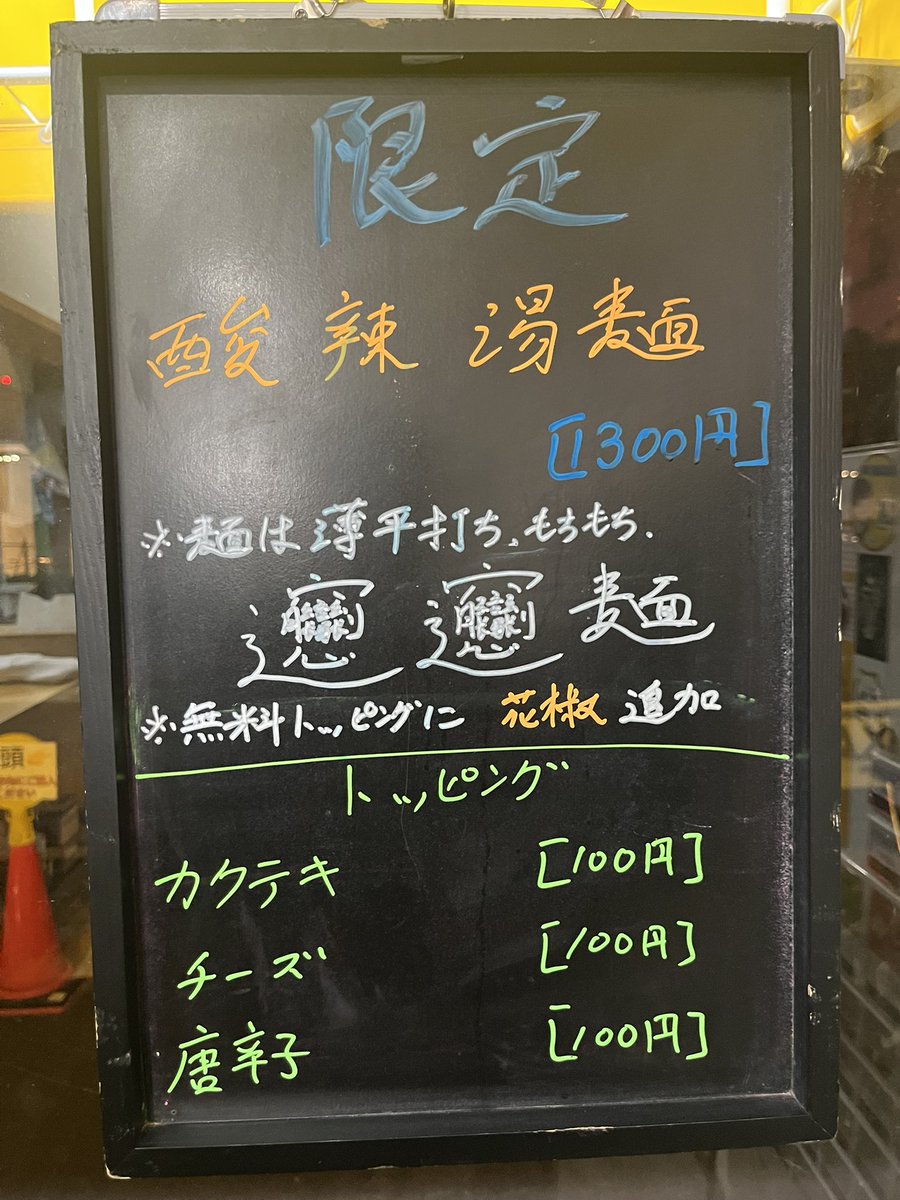 限定
酸辣湯麺
[1300円]
※麺は薄平打ち、もちもち.
𰻞𰻞麺
※無料トッピングに 花椒 追加
トッピング
カクテキ [100円]
チーズ [100円]
唐辛子 [100円]
頭
ください